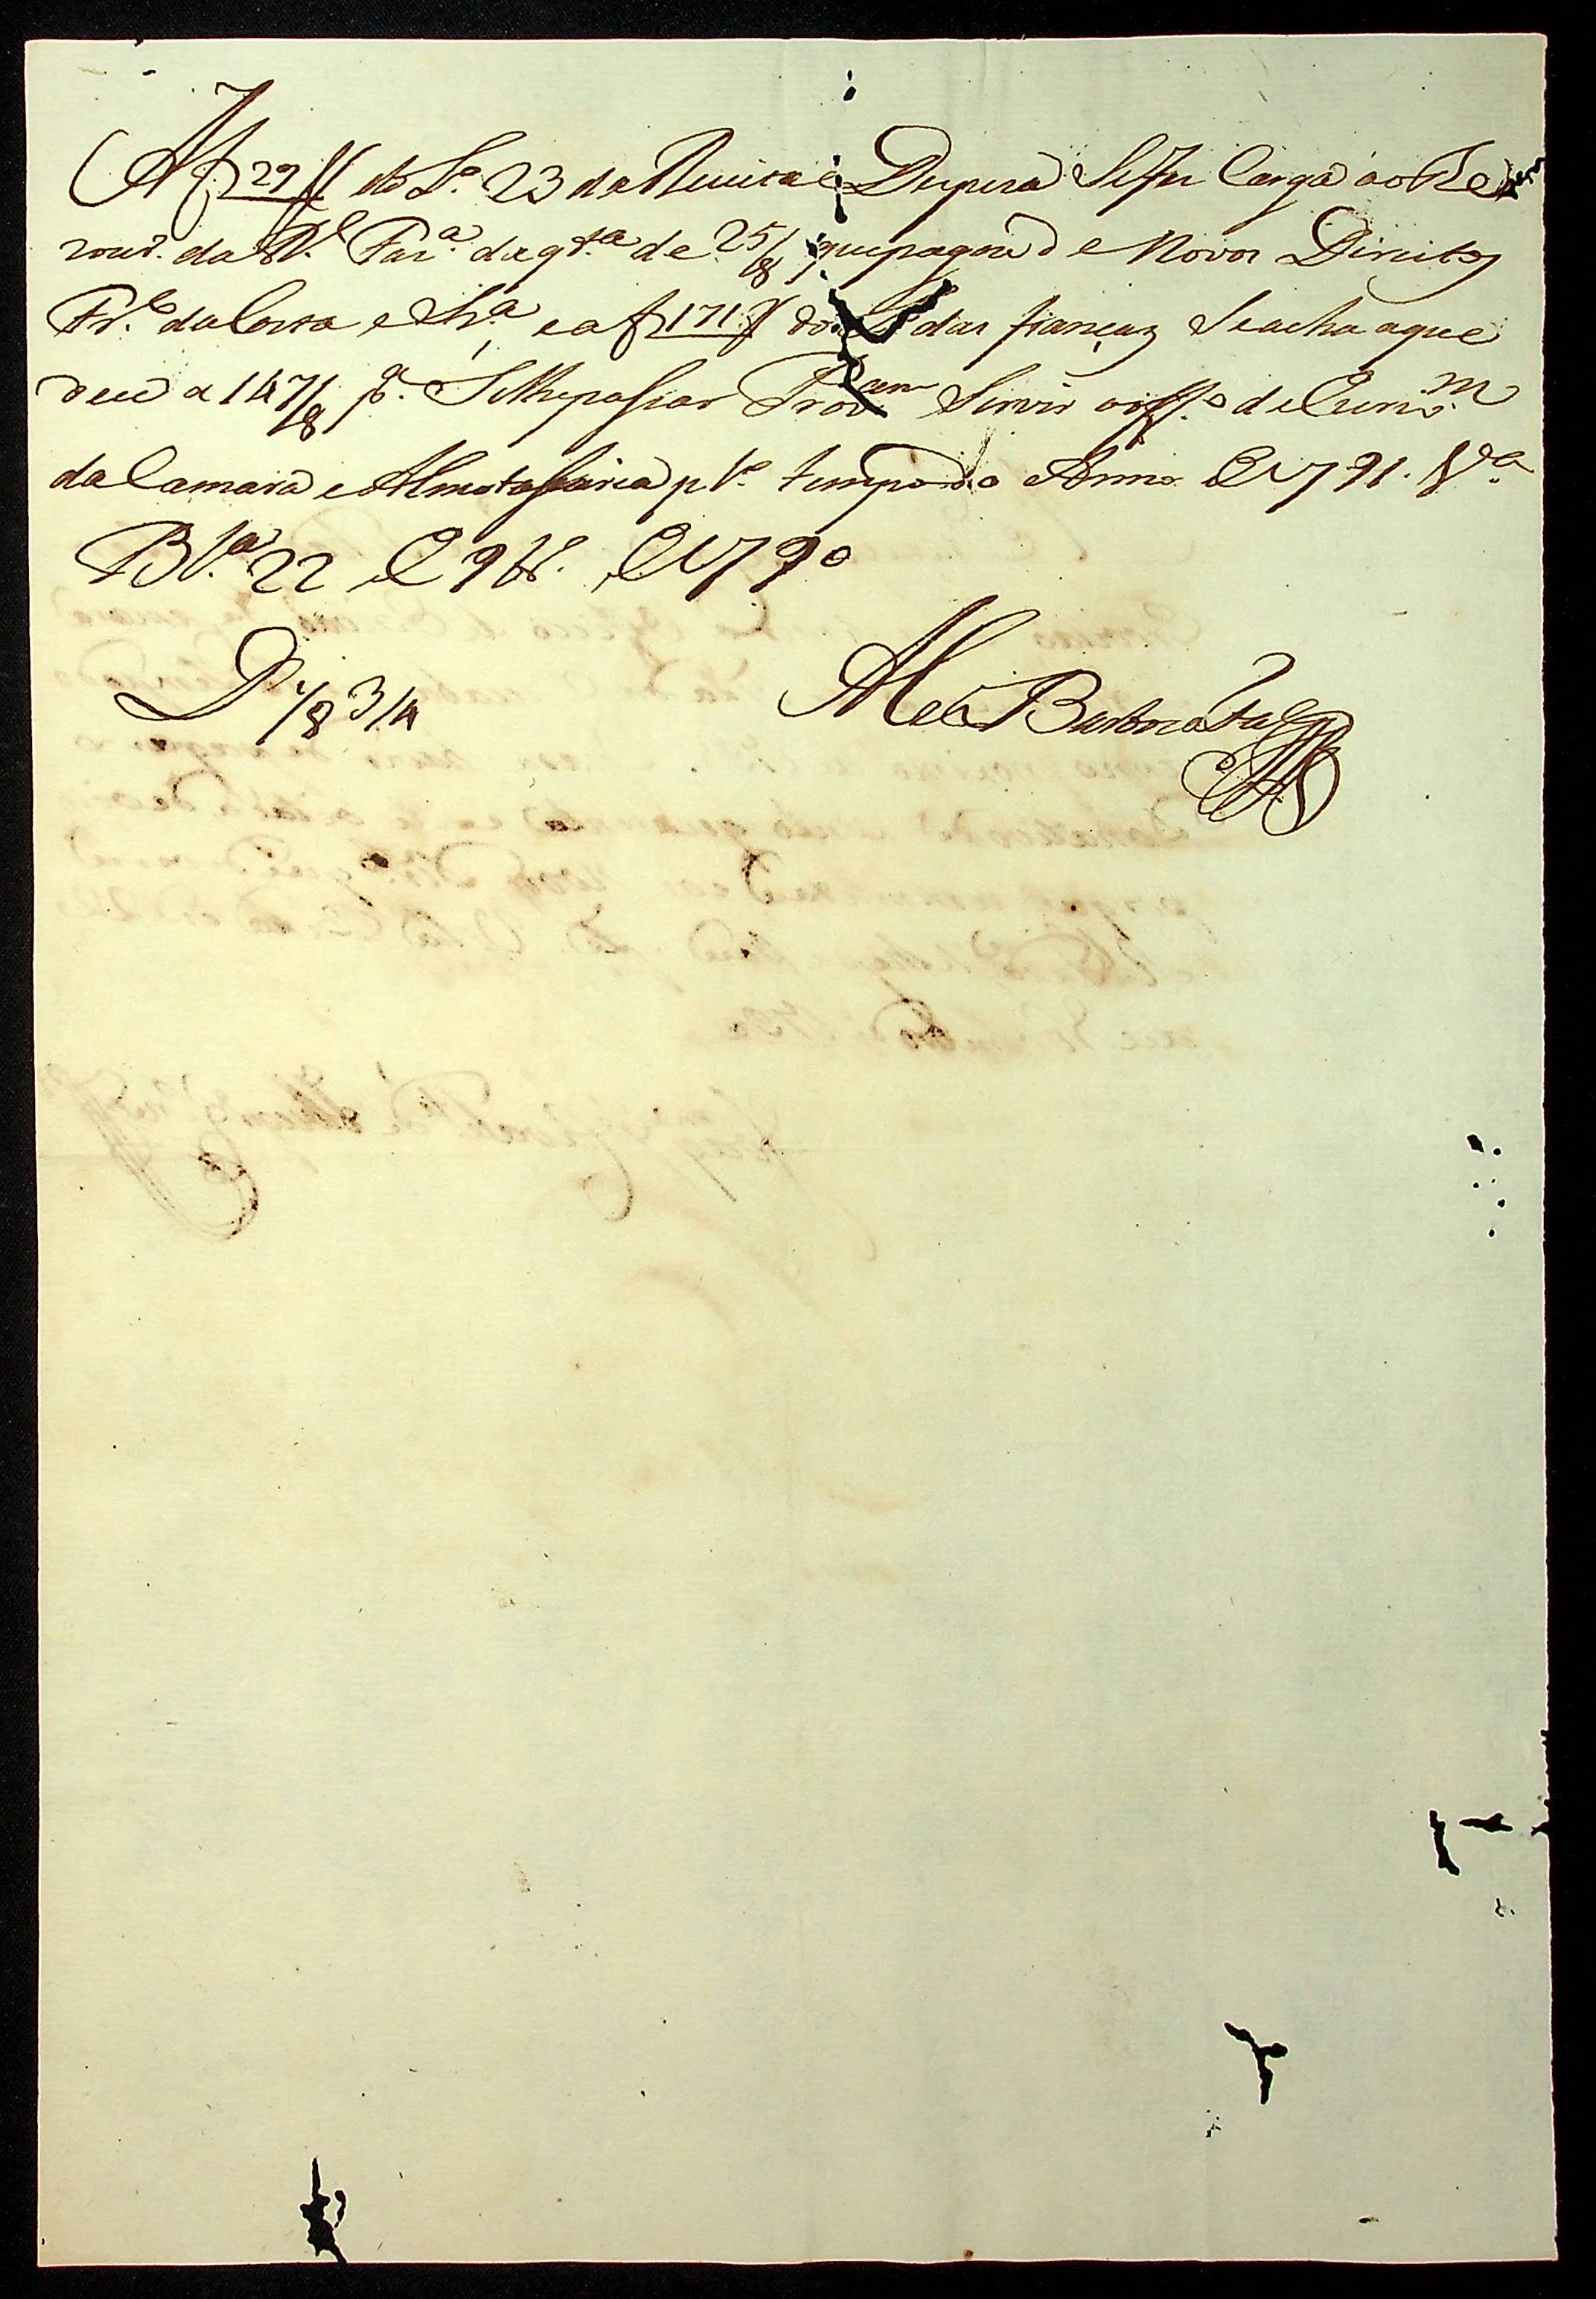 A f 29 do L.º 23 da Receita e Despeza Se fez Carga ao The
zour.º da R.l Faz.ª da q.tia de 25/8 que pagou de Novos Direitos
Fr.co da Costa e S.ª, e a f 171 do L.º das fianças Se acha a que
deu a 147/8 p.ª Se lhe passar Prov.am Servir o off.º de Escriv.m
da Camara e Almotassaria p.lo tempo do Anno de 1791. V.ª
B.ª 22 de 9br.º de 1790
D 1/8 3/4
M.el Barboza